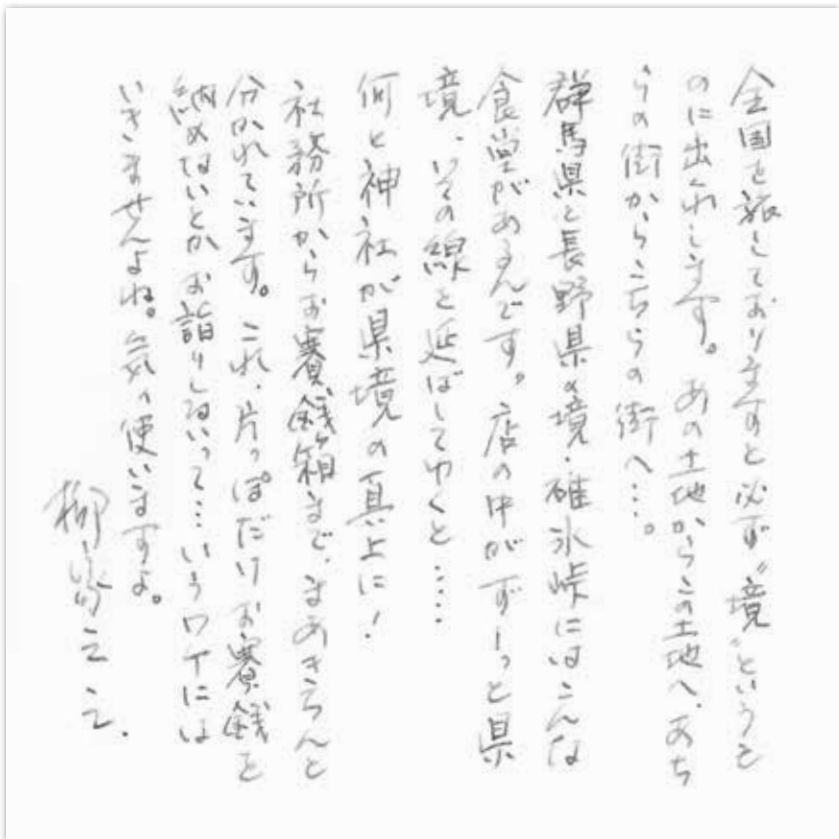 全国を旅しておりますと必ず“境”というも
のに出くわします。あの土地からこの土地へ、あち
らの街からこちらの街へ…。
群馬県と長野県の境・碓氷峠にはこんな
食堂があるんです。店の中がずーっと県
境、いその線を延ばしてゆくと……
何と神社が県境の真上に!
社務所からお賽銭箱まで、まあきちんと
分かれています。これ、片っぽだけお賽銭を
納めないとかお詣りしないって…いうワケには
いきませんよね。気ィ使いますよ。